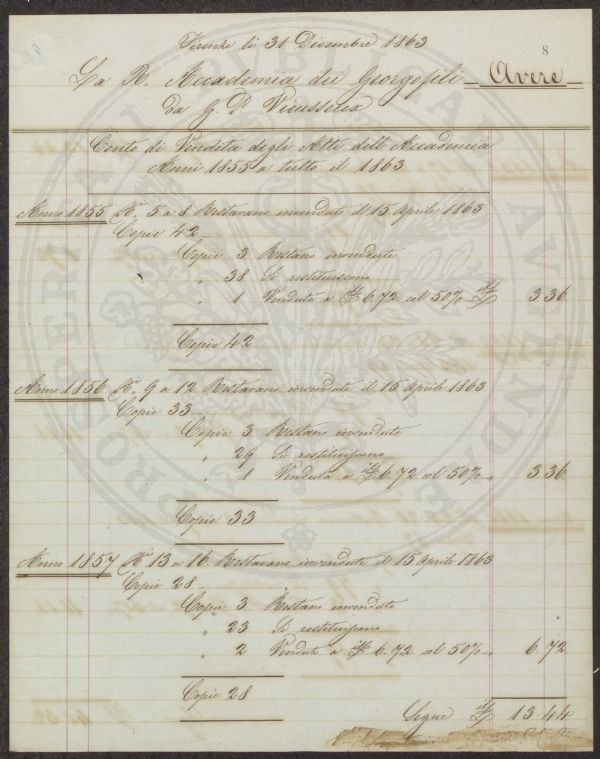 8
Firenze li 31 Dicembre 1863
La R. Accademia dei Georgofili Avere
da G. P. Vieusseux
Conto di Vendita degli Atti dell'Accademia
Anni 1855 a tutto il 1863
Anno 1855 Ni 5 a 8 Restavano invendute il 15 Aprile 1863
Copie 42
Copie 3 Restano invendute
" 38 Si restituiscono
" 1 Venduta a 6.72 al 50% 3 36
Copie 42
Anno 1856 Ni 9 a 12 Restavano invendute il 15 Aprile 1863
Copie 33
Copie 3 Restano invendute
" 29 Si restituiscono
" 1 Venduta a 6.72 al 50% 3 36
Copie 33
Anno 1857 Ni 13 a 16 Restavano invendute il 15 Aprile 1863
Copie 28
Copie 3 Restano invendute
" 23 Si restituiscono
" 2 Vendute a 6.72 al 50% 6 72
Copie 28
Segue 13 44
PROSPERITATI PUBLICAE AUGENDAE